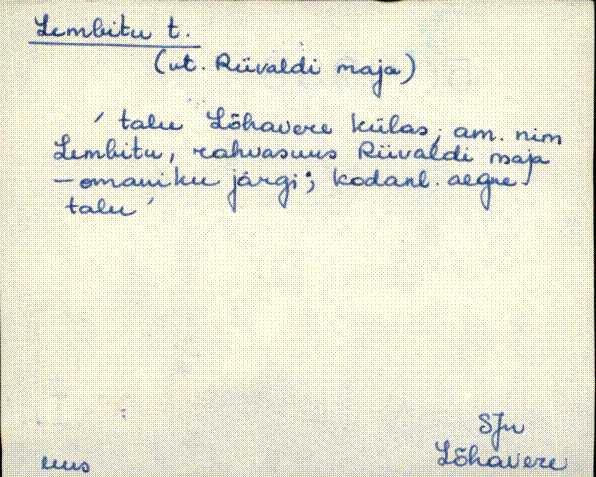 Lembitu t.
(vt. Rüvaldi maja)
' talu Lõhavere külas, am. nim
Lembitu, rahvasuus Rüvaldi maja
- omaniku järgi; kodanl. aegne
talu '
SJn
Lõhavere
uus